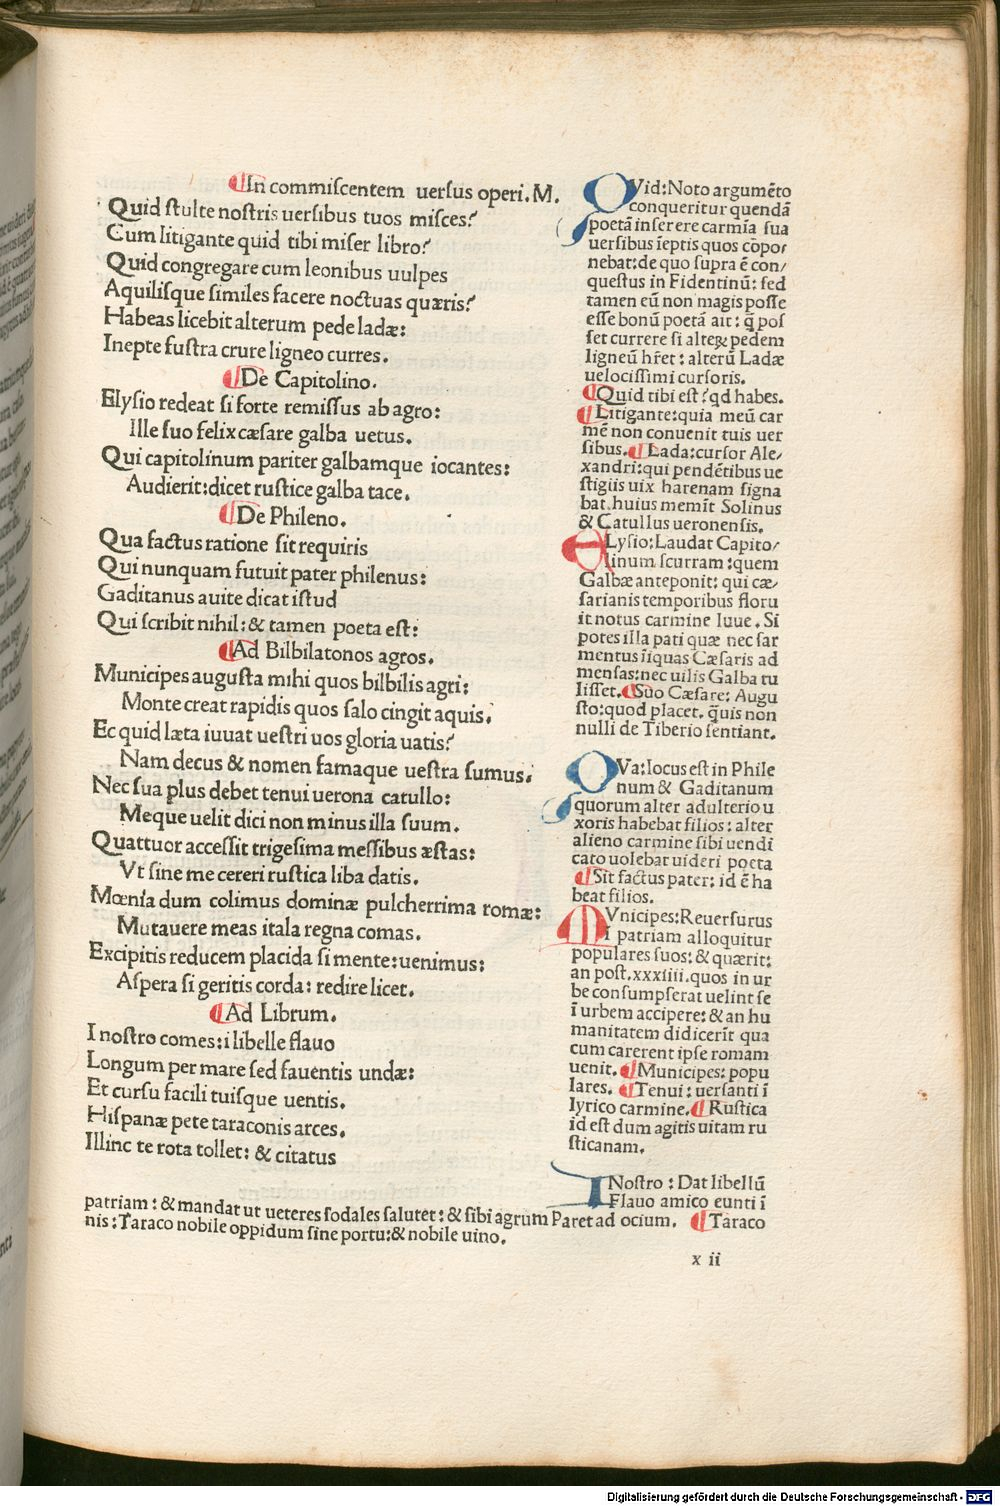 ¶In commiscentem uersus operi. M.
Quid stulte nostris uersibus tuos misces?
Cum litigante quid tibi miser libro?
Quid congregare cum leonibus uulpes
Aquilisque similes facere noctuas quæris?
Habeas licebit alterum pede ladæ:
Inepte fustra crure ligneo curres.
¶De Capitolino.
Elysio redeat si forte remissus ab agro:
Ille suo felix cæsare galba uetus.
Qui capitolinum pariter galbamque iocantes:
Audierit: dicet rustice galba tace.
¶De Phileno.
Qua factus ratione sit requiris
Qui nunquam futuit pater philenus:
Gaditanus auite dicat istud
Qui scribit nihil: & tamen poeta est:
¶Ad Bilbilatonos agros.
Municipes augusta mihi quos bilbilis agri:
Monte creat rapidis quos salo cingit aquis.
Ec quid læta iuuat uestri uos gloria uatis?
Nam decus & nomen famaque uestra sumus.
Nec sua plus debet tenui uerona catullo:
Meque uelit dici non minus illa suum.
Quattuor accessit trigesima messibus æstas:
Vt sine me cereri rustica liba datis.
Mœnia dum colimus dominæ pulcherrima romæ:
Mutauere meas itala regna comas.
Excipitis reducem placida si mente: uenimus:
Aspera si geritis corda: redire licet.
¶Ad Librum.
I nostro comes: i libelle flauo
Longum per mare sed fauentis undæ:
Et cursu facili tuisque uentis.
Hispanæ pete taraconis arces.
Illinc te rota tollet: & citatus
QVid: Noto argumēto
conqueritur quendā
poetā inserere carmīa sua
uersibus īeptis quos cōpo/
nebat: de quo supra ē con/
questus in Fidentinū: sed
tamen eū non magis posse
esse bonū poetā ait: q̄ pos
set currere si alteꝝ pedem
ligneū hr̄et: alterū Ladæ
uelocissimi cursoris.
¶Quid tibi est? qd habes.
¶Litigante: quia meū car
mē non conuenit tuis uer
sibus. ¶Lada: cursor Ale/
xandri: qui pendētibus ue
stigiis uix harenam signa
bat. huius memīt Solinus
& Catullus ueronensis.
ELysio: Laudat Capito/
linum scurram: quem
Galbæ anteponit: qui cæ/
sarianis temporibus floru
it notus carmine Iuue. Si
potes illa pati quæ nec sar
mentus īiquas Cæsaris ad
mensas: nec uilis Galba tu
lisset. ¶Suo Cæsare: Augu
sto: quod placet. q̄uis non
nulli de Tiberio sentiant.
QVa: locus est in Phile
num & Gaditanum
quorum alter adulterio u
xoris habebat filios: alter
alieno carmine sibi uendi
cato uolebat uideri poeta
¶Sit factus pater: id ē ha
beat filios.
MVnicipes: Reuersurus
ī patriam alloquitur
populares suos: & quærit:
an post. xxxiiii. quos in ur
be consumpserat uelint se
ī urbem accipere: & an hu
manitatem didicerīt qua
cum carerent ipse romam
uenit. ¶Municipes: popu
lares. ¶Tenui: uersanti ī
lyrico carmine. ¶Rustica
id est dum agitis uitam ru
sticanam.
I Nostro: Dat libellū
Flauo amico eunti ī
patriam: & mandat ut ueteres sodales salutet: & sibi agrum Paret ad ocium. ¶Taraco
nis: Taraco nobile oppidum sine portu: & nobile uino.
x ii
Digitalisierung gefördert durch die Deutsche Forschungsgemeinschaft - DFG